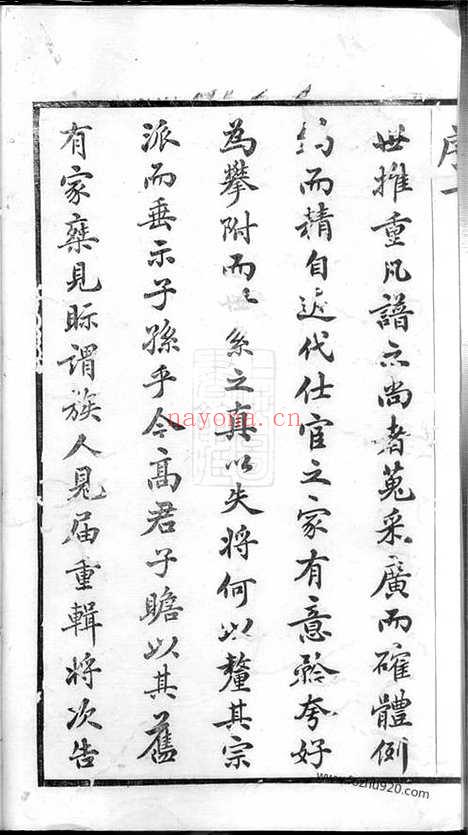 序一
世推重凡譜之尚者蒐采廣而確體例
約而精自近代仕宦之家有意矜夸好
為攀附而世系之真以失將何以釐其宗
派而垂示子孫乎今高君子瞻以其舊
有家乘見眎謂族人見届重輯將次告
nayona.cn
fozhu920.com